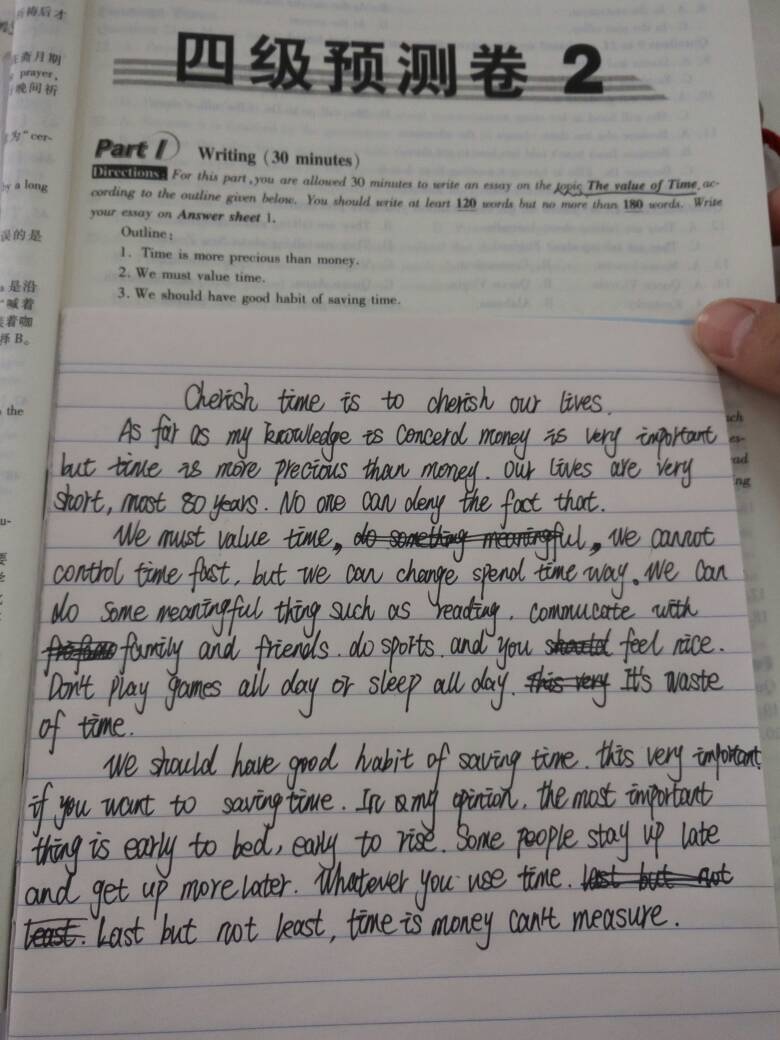 后才
斋月期
prayer,
晚间祈
为"cer-
by a long
误的是
是沿
喊着
着咖
择 B。
the
四级预测卷 2
Part I Writing (30 minutes)
Directions: For this part, you are allowed 30 minutes to write an essay on the topic The value of Time, ac-
cording to the outline given below. You should write at leart 120 words but no more than 180 words. Write
your essay on Answer sheet 1.
Outline:
1. Time is more precious than money.
2. We must value time.
3. We should have good habit of saving time.
Cherish time is to cherish our lives.
As far as my knowledge is concerd money is very important
but time is more precious than money. Our lives are very
short, most 80 years. No one can deny the fact that.
We must value time, do something meaningful, We cannot
control time fast, but we can change spend time way. We can
do some meaningful thing such as reading. commucate with
family and friends. do sports. and you should feel nice.
Don't play games all day or sleep all day. this very It's waste
of time.
We should have good habit of saving time. this very important
if you want to saving time. In my opinion, the most important
thing is early to bed, early to rise. Some people stay up late
and get up more later. Whatever you use time. last but not
least. Last but not least, time is money can't measure.